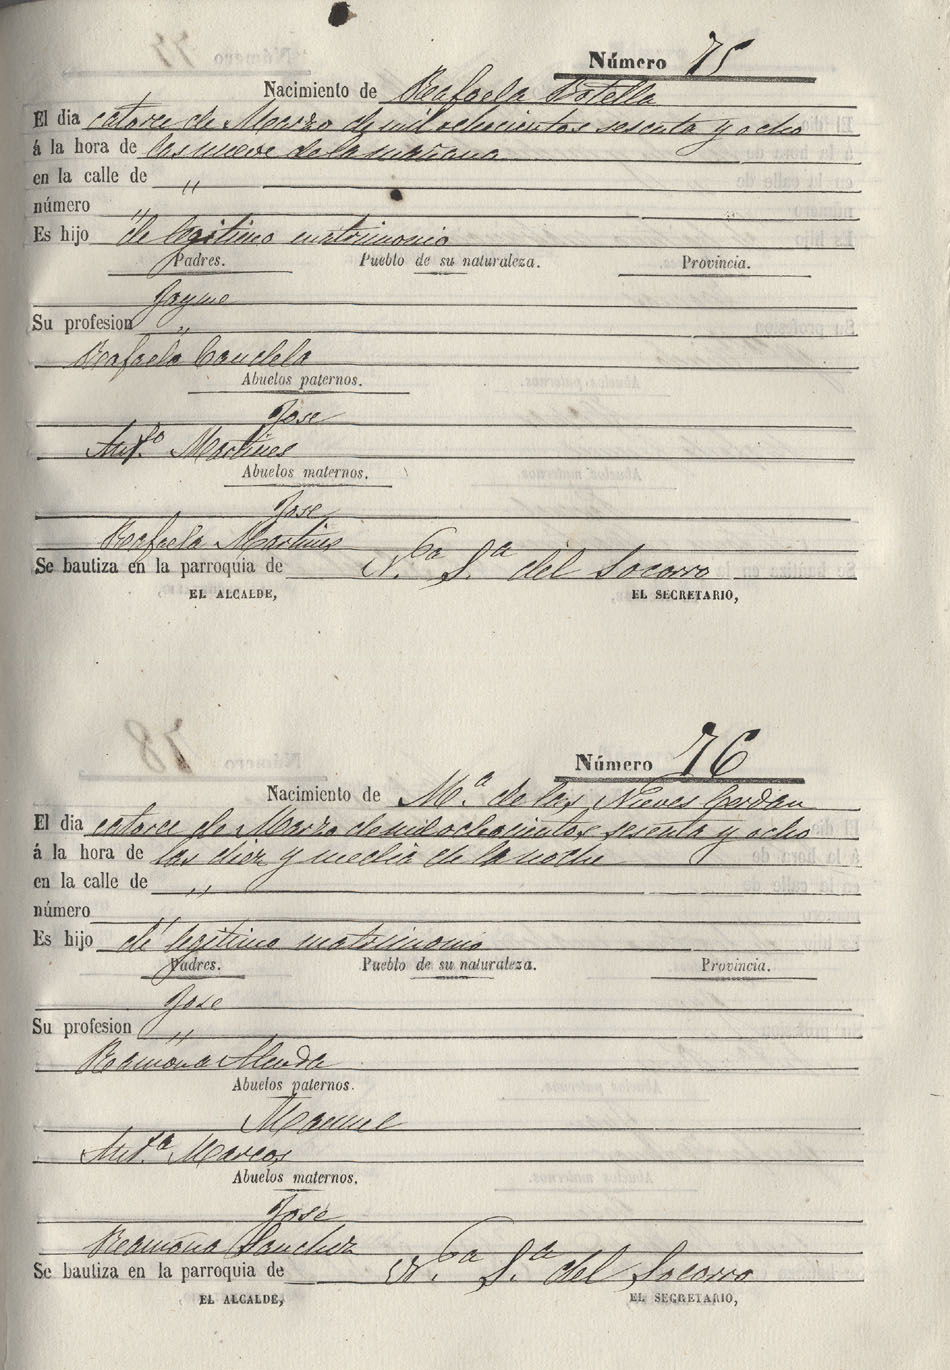 Número 75
Nacimiento de Rafaela Botella
El dia catorce de Marzo de mil ochocientos sesenta y ocho
á la hora de las nueve de la mañana
en la calle de "
número "
Es hijo de legitimo matrimonio
Padres. Pueblo de su naturaleza. Provincia.
Jayme
Su profesion "
Rafaela Candela
Abuelos paternos.
Jose
Martines
Abuelos maternos.
Jose
Rafaela Martines
Se bautiza en la parroquia de N.tra S.a del Socorro
EL ALCALDE, EL SECRETARIO,
Número 76
Nacimiento de M.a de las Nieves Cerdan
El dia catorce de Marzo de mil ochocientos sesenta y ocho
á la hora de las diez y media de la noche
en la calle de "
número "
Es hijo de legitimo matrimonio
Padres. Pueblo de su naturaleza. Provincia.
Jose
Su profesion "
Ramona
Abuelos paternos.
Manuel
Ant.a Marcos
Abuelos maternos.
Jose
Ramona Sanchez
Se bautiza en la parroquia de N.tra S.a del Socorro
EL ALCALDE, EL SECRETARIO,